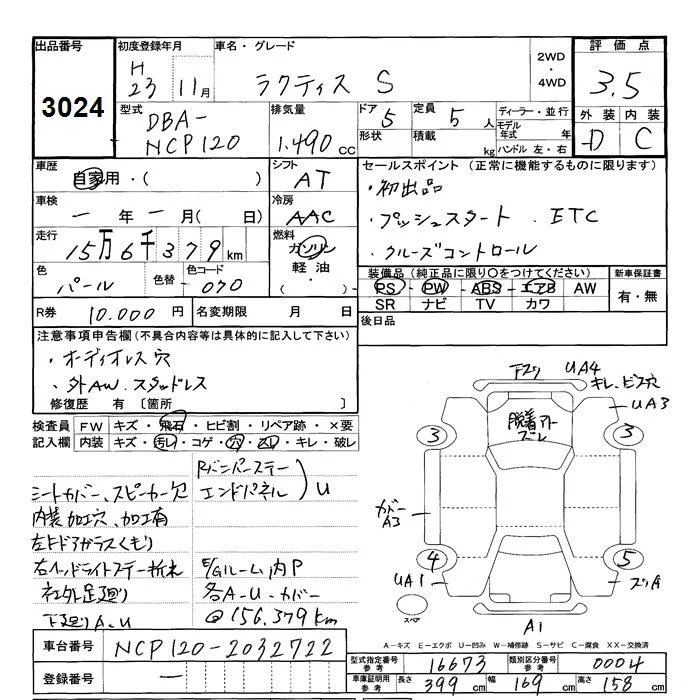 出品番号 初度登録年月 車名・グレード 2WD・4WD 評価点
3024 H 23 11月 ラクティス S 3.5
型式 DBA-NCP120 排気量 1.490 cc ドア 5 定員 5人 ディーラー・並行
形状 積載 kg モデル年式 年 ハンドル 左・右
外装 内装
D C
車歴 自家用・( ) シフト AT
車検 一年一月( 日) 冷房 AAC
走行 15万6千379km 燃料 ガソリン 軽油・( )
色 パール 色替 カラーコード 070
R券 10.000円 名変期限 月 日
セールスポイント (正常に機能するものに限ります)
・初出品
・プッシュスタート. ETC
・クルーズコントロール
装備品 (純正品に限り○をつけてください) 新車保証書
PS・PW・ABS・エアB AW 有・無
SR ナビ TV カワ
後日品
注意事項申告欄 (不具合内容等は具体的に記入して下さい)
・オーディオレス穴
・外AW.スタッドレス
修復歴 有 [箇所 ]
検査員記入欄 FW キズ・飛石・ヒビ割・リペア跡・×要
内装 キズ・汚レ・コゲ・穴・スレ・キレ・破レ
シートカバー、スピーカー欠
内装加工穴、加工有
左上ドアガラスくもり
右ヘッドライトステー折れ
社外足廻り
下廻りA-U
Rバンパーステー
エンドパネル U
E/Gルーム内P
各A-U-カバー
@156.379km
UA4
キレ、ビス穴
UA3
3 3
脱着アト
ズレ
カバー
A3
4 5
UA1
ズリA
スペア
A1
A-キズ E-エクボ U-凹み W-補修跡 S-サビ C-腐食 XX-交換済
車台番号 NCP120-2032722
登録番号 一
型式指定番号 参考 16673 類別区分番号 参考 0004
車庫証明用 参考 長さ 399 cm 幅 169 cm 高さ 158 cm